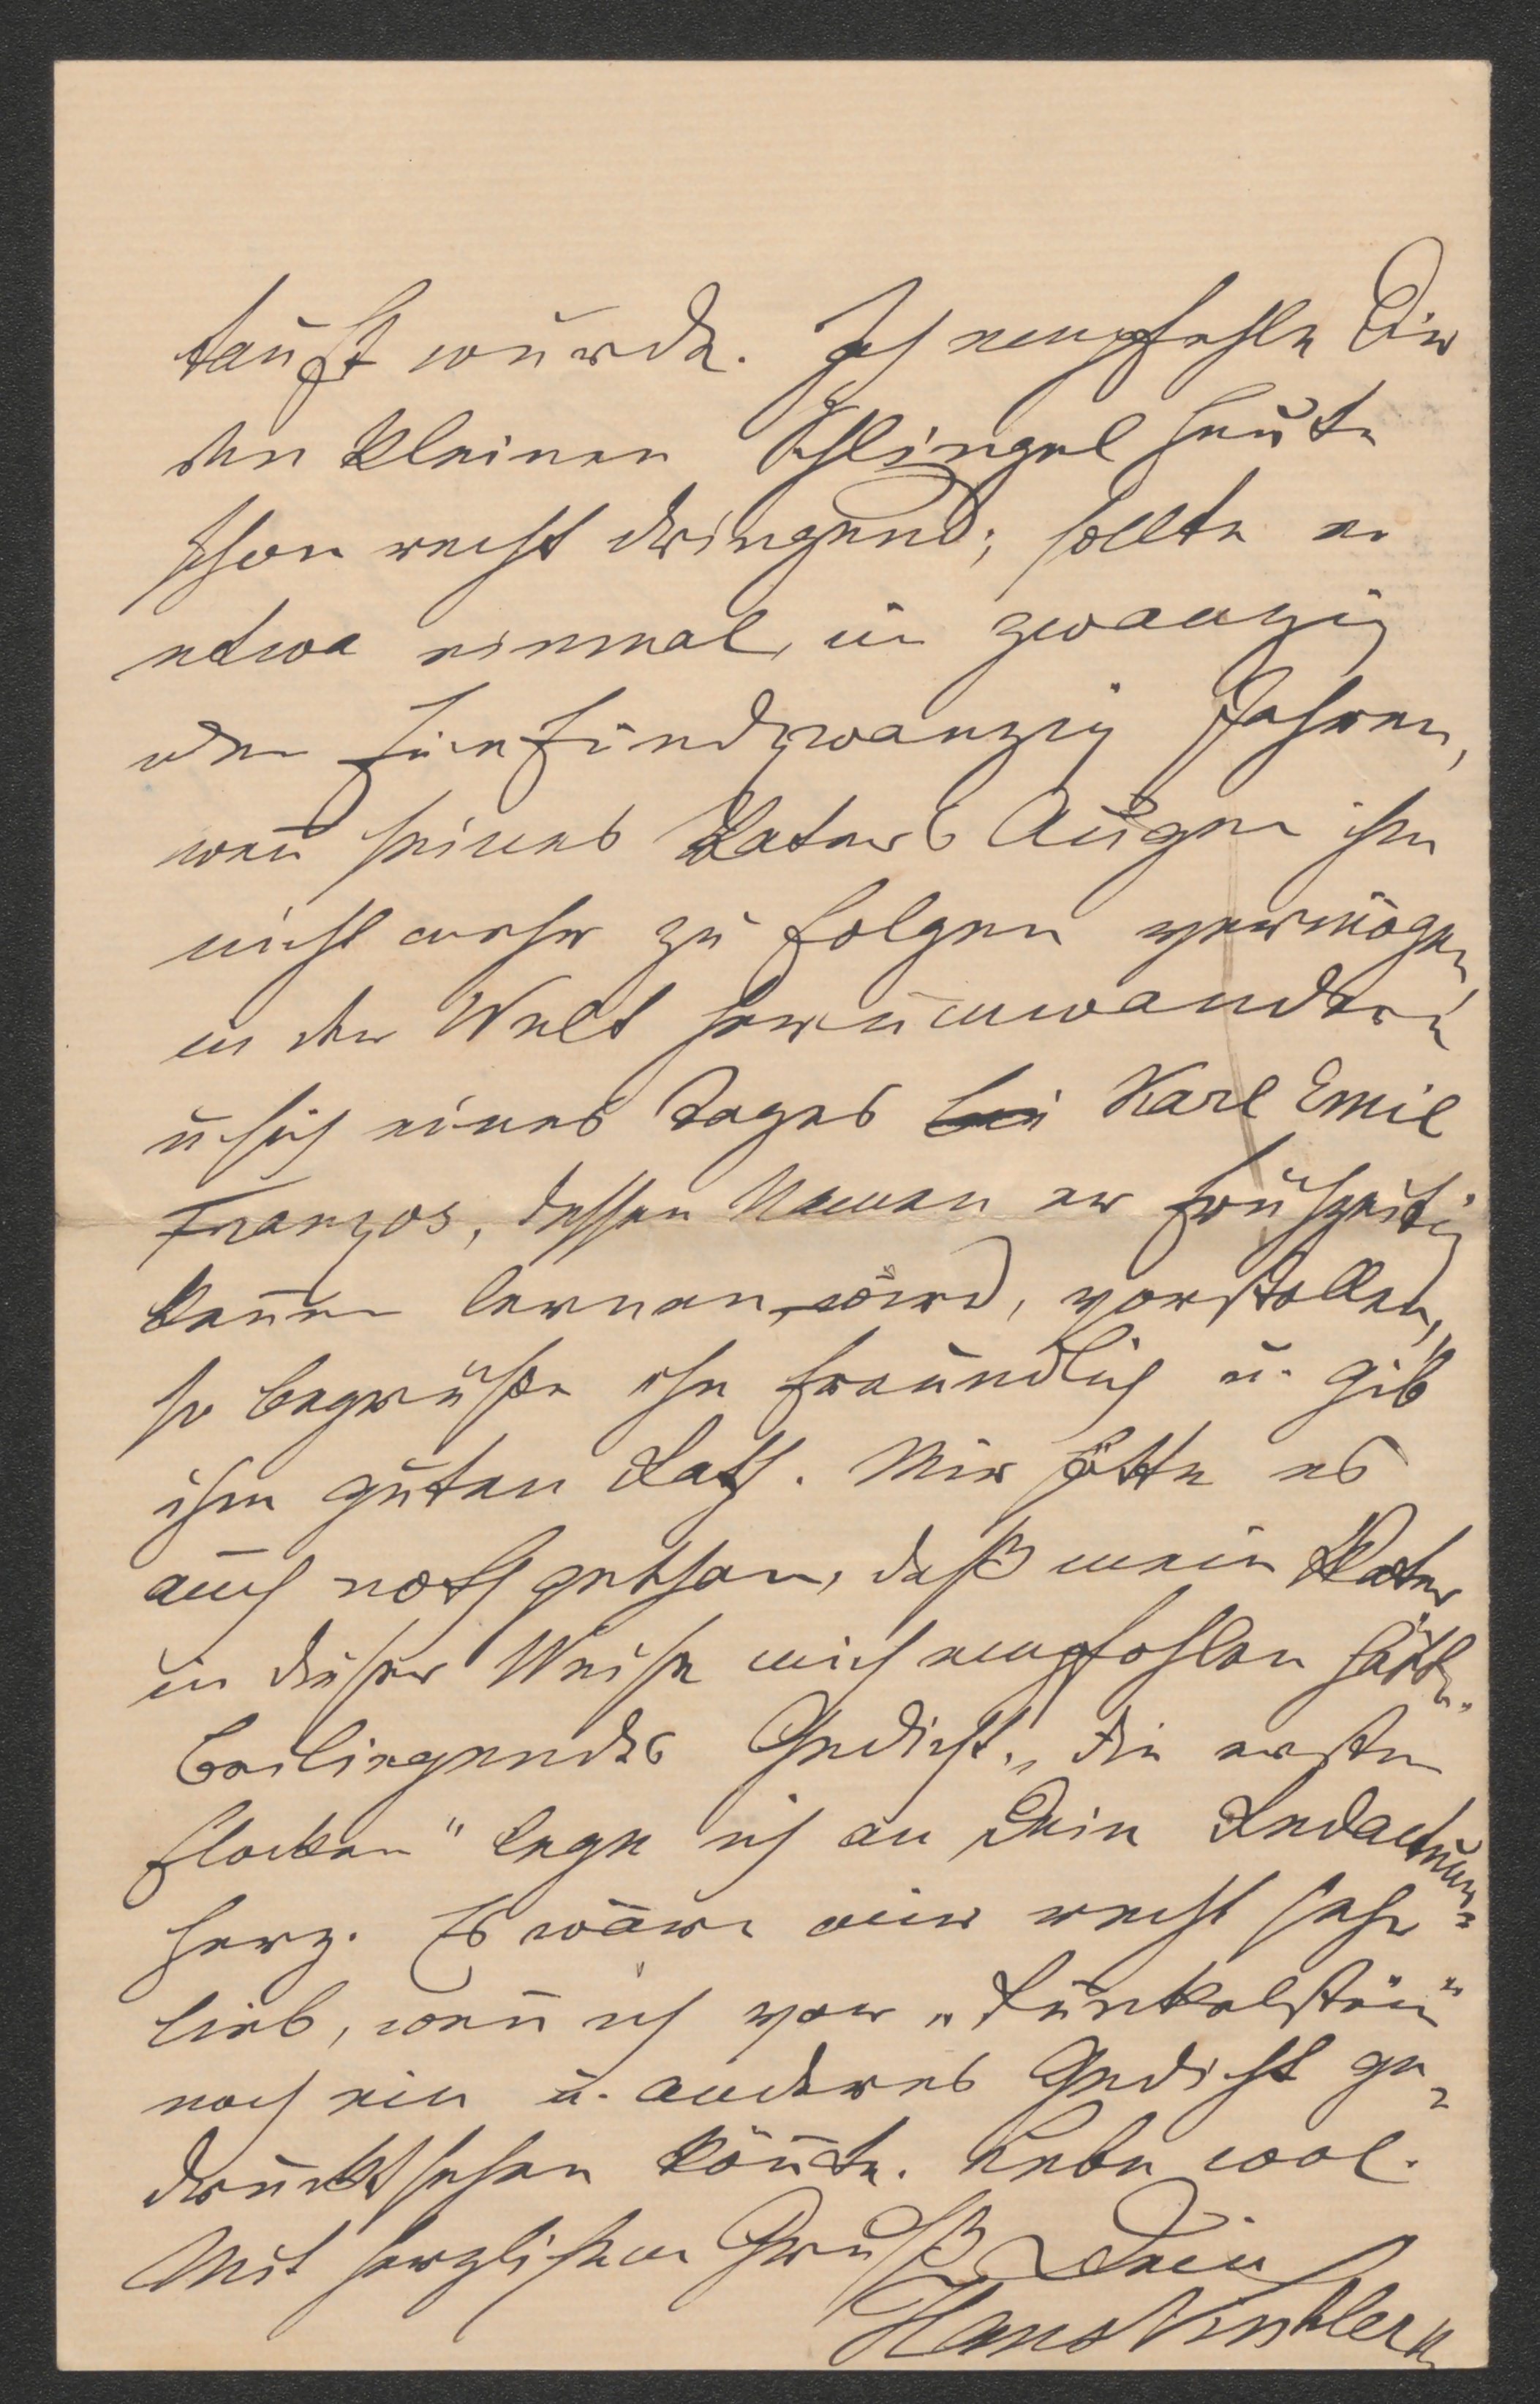 tauft wurde. Ich empfehle Dir
den kleinen Schlingel heute
schon recht dringend; sollte er
etwa einmal, in zwanzig
oder fünfundzwanzig Jahren,
wen̄ seines Vaters Augen ihm
nicht mehr zu folgen vermögen,
in der Welt herumwandern
u sich eines Tages bei Karl Emil
Franzos, dessen Namen er frühzeitig
ken̄en lernen wird, vorstellen,
so begrüße ihn freundlich u. gib
ihm guten Rath. Mir hätte es
auch noth gethan, daß mein Vater
in dieser Weise mich empfohlen hätte.
Beiliegendes Gedicht „Die ersten
Flocken" lege ich an Dein Redacteur-
herz. Es wäre mir recht sehr
lieb, wen̄ ich vor „Runkelstein"
noch ein u. anderes Gedicht ge-
druckt sehen kön̄te. Lebe wol.
Mit herzlichem Gruß Dein
Hans Vintlern